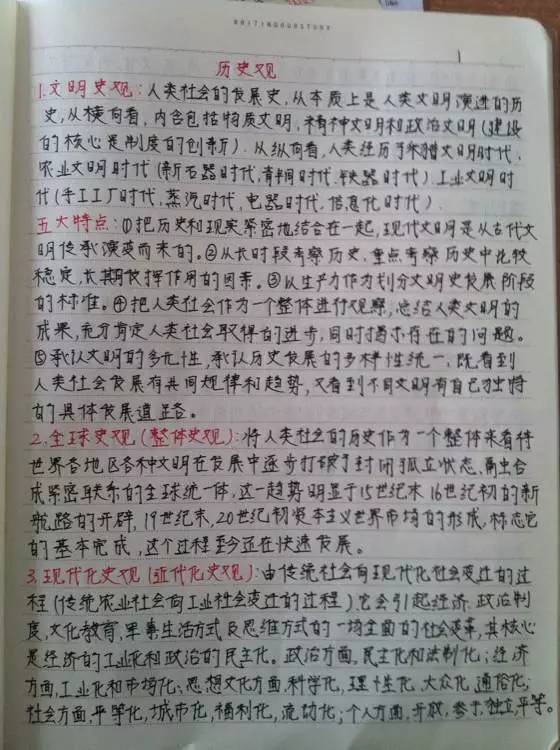 历史观
1.文明史观:人类社会的发展史,从本质上是人类文明演进的历
史,从横向看,内含包括物质文明,精神文明和政治文明(建设
的核心是制度的创新).从纵向看,人类经历了采猎文明时代,
农业文明时代(新石器时代,青铜时代.铁器时代)工业文明时
代(手工工厂时代,蒸汽时代,电器时代.信息化时代).
五大特点:①把历史和现实紧密地结合在一起,现代文明是从古代文
明传承演变而来的。②从长时段考察历史,重点考察历史中比较
稳定,长期发挥作用的因素。③以生产力作为划分文明史发展阶段
的标准。④把人类社会作为一个整体进行观察,总结人类文明的
成果,充分肯定人类社会取得的进步,同时揭示存在的问题。
⑤承认文明的多元性,承认历史发展的多样性统一,既看到
人类社会发展有共同规律和趋势,又看到不同文明有自己独特
的具体发展道路。
2.全球史观(整体史观):将人类社会的历史作为一个整体来看待
世界各地区各种文明在发展中逐步打破了封闭孤立状态,融合
成紧密联系的全球统一体,这一趋势明显于15世纪末16世纪初的新
航路的开辟,19世纪末,20世纪初资本主义世界市场的形成,标志它
的基本完成,这个过程至今还在快速发展。
3.现代化史观(近代化史观):由传统社会向现代化社会变迁的过
程(传统农业社会向工业社会变迁的过程)它会引起经济.政治制
度,文化教育,军事生活方式及思维方式的一场全面的社会变革,其核心
是经济的工业化和政治的民主化。政治方面,民主化和法制化;经济
方面,工业化和市场化;思想文化方面,科学化,理性化,大众化,通俗化;
社会方面,平等化,城市化,福利化,流动化;个人方面,开放,参与,独立,平等。